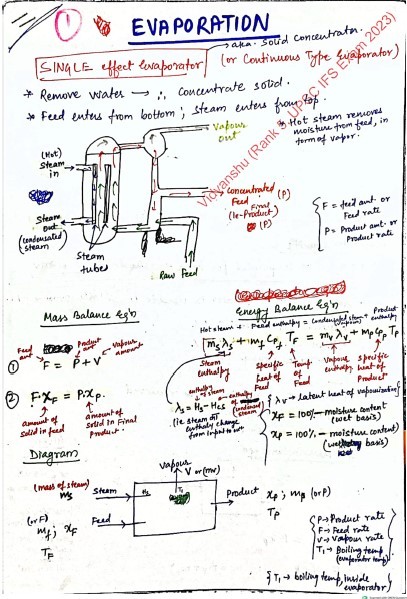 ① EVAPORATION
SINGLE effect evaporator
a.k.a. Solid concentrator.
(or Continuous Type Evaporator)
* Remove water → ∴ Concentrate solid.
* Feed enters from bottom; Steam enters from top.
Vidyanshu (Rank 5 UPSC IFS Exam 2023)
* Hot steam removes
moisture from feed, in
form of vapor.
Vapour
out
(Hot)
Steam
in
Steam
out
(condensated
steam)
Steam
tubes
Concentrated
Feed (P)
(ie-Final Product)
(P)
Raw Feed
F = feed amt. or
Feed rate
P = Product amt. or
Product rate
Mass Balance Eq'n
Feed amt
Product amt
Vapour amount
① F = P + V
② F·XF = P·XP
amount of
solid in feed
amount of
solid in Final
Product.
Energy Balance Eq'n
Hot steam + Feed enthalpy = Condensated steam + Product enthalpy
(vapour)
msλs + mf CPf TF = mvλv + mP CPp TP
Steam
enthalpy
Specific
heat of
Feed
Temp
of
Feed
Vapour
enthalpy
Specific
heat of
Product
enthalpy
of steam
enthalpy of
condensed
steam
λs = Hs - Hcs
(ie. steam
enthalpy change
from input to out
λv → Latent heat of vapourization
XF = 100% - moisture content
(wet basis)
XP = 100% - moisture content
(wet basis)
Diagram
Vapour
V (or mv)
(mass of steam)
ms
Steam
Hs
T1
Product
XP ; mP (or P)
TP
(or F)
mf ; XF
TF
Feed
P → Product rate
F → Feed rate
V → Vapour rate
T1 → Boiling temp
(evaporator temp)
{ T1 → boiling temp, inside
evaporator}